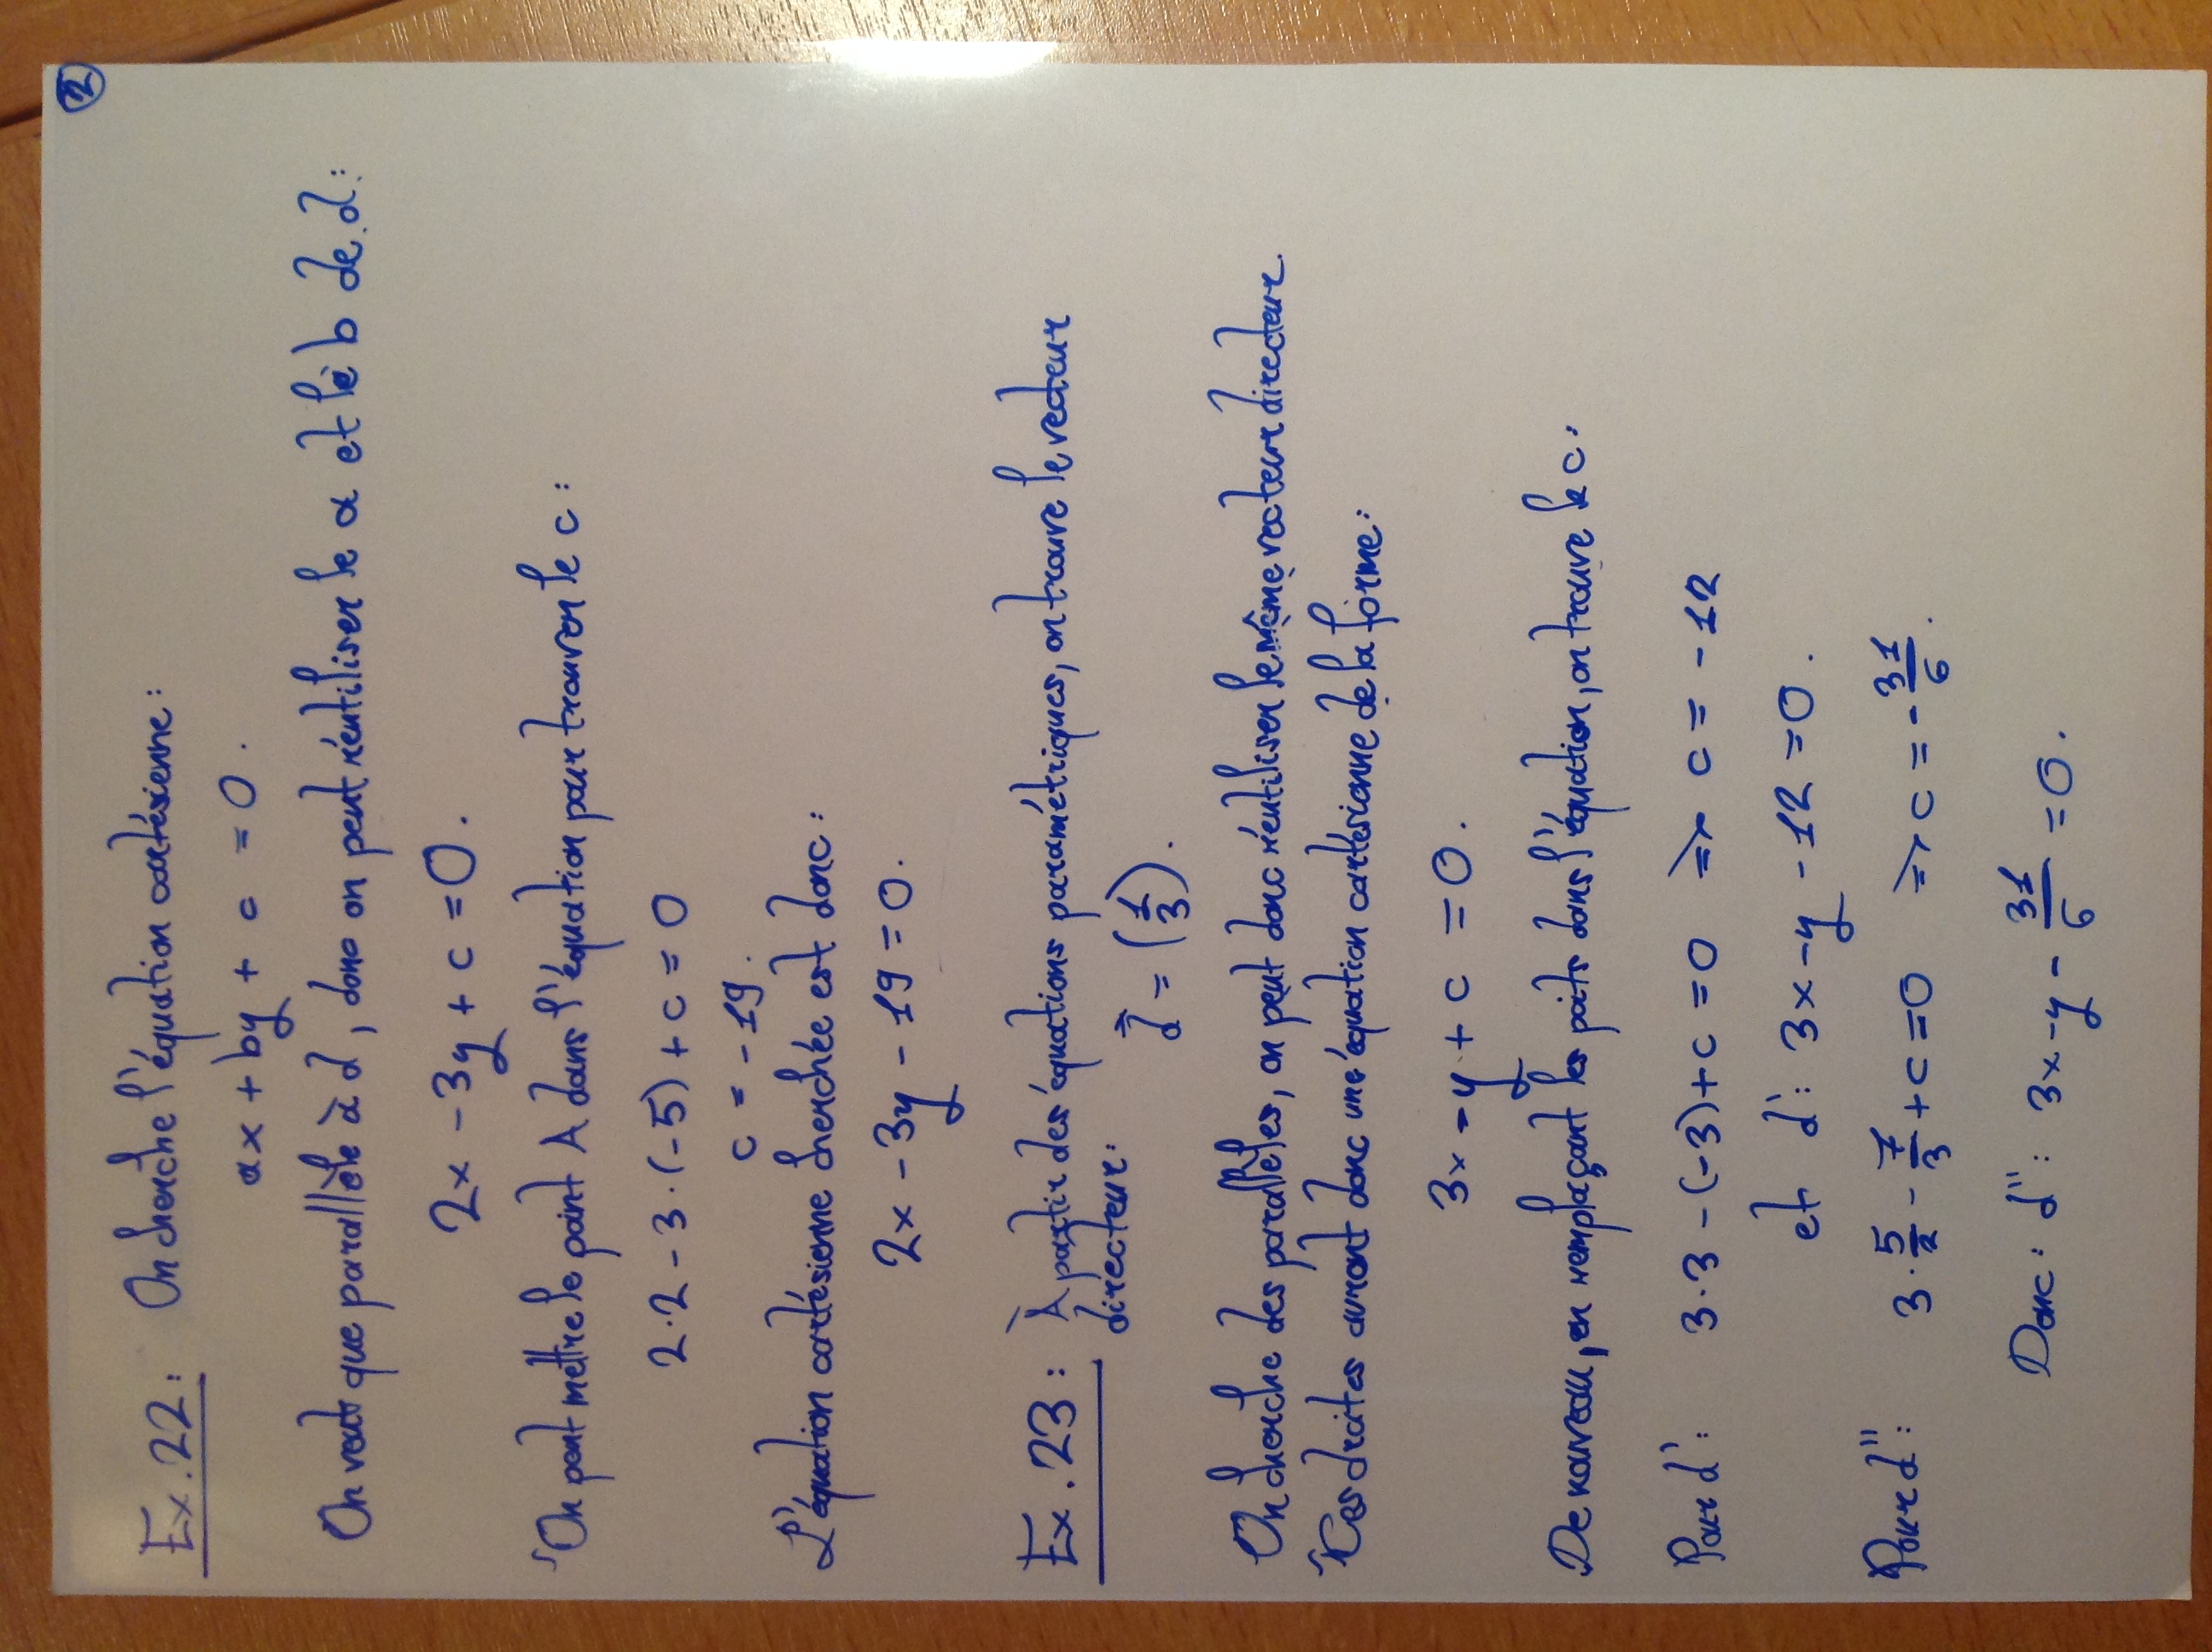 2
Ex. 22 : On cherche l'équation cartésienne :
ax + by + c = 0 .
On veut que parallèle à d, donc on peut réutiliser le a et le b de d :
2x - 3y + c = 0.
On peut mettre le point A dans l'équation pour trouver le c :
2·2 - 3·(-5) + c = 0
c = -19.
L'équation cartésienne cherchée est donc :
2x - 3y - 19 = 0.
Ex. 23 : À partir des équations paramétriques, on trouve le vecteur
directeur: d⃗ = (1 3).
On cherche des parallèles, on peut donc réutiliser le même vecteur directeur.
Ces droites auront donc une équation cartésienne de la forme :
3x - y + c = 0.
De nouveau, en remplaçant les poits dans l'équation, on trouve le c :
Pour d' : 3·3 - (-3) + c = 0 => c = -12
et d' : 3x - y - 12 = 0.
Pour d'' : 3·5/2 - 7/3 + c = 0 => c = - 31/6.
Donc : d'' : 3x - y - 31/6 = 0.